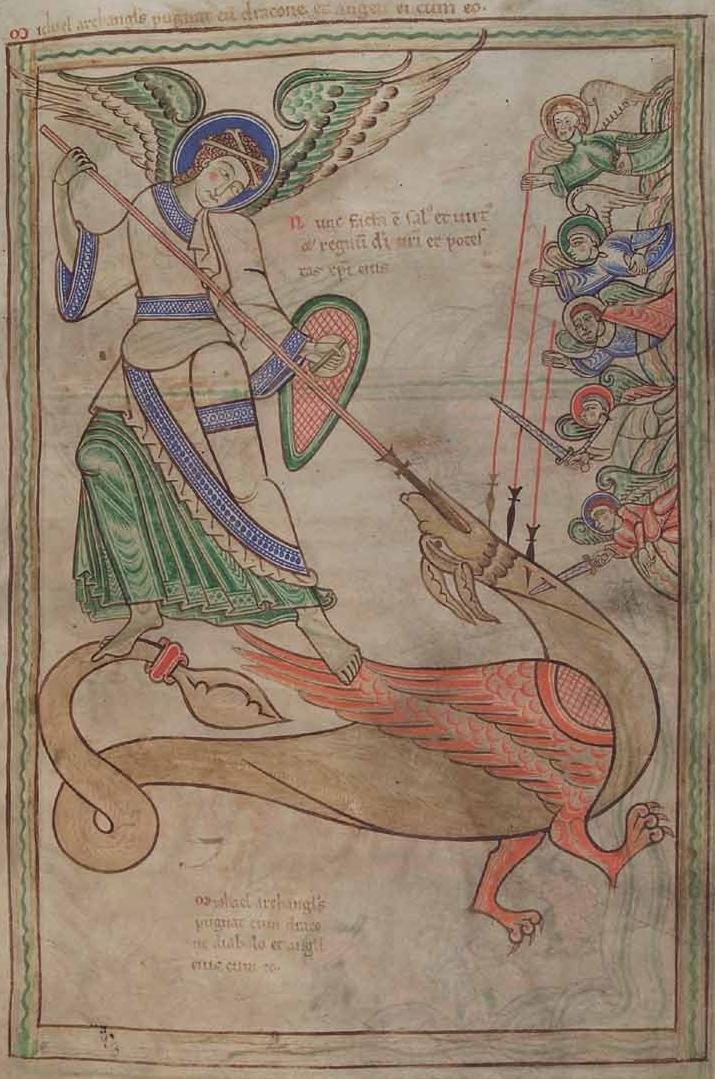 Michael archangl's pugnat cū dracone. et angeli ei cum eo.
Nunc facta ē sal' et uirt'
& regnū di nri et potes
tas xpi eius
Michael archangl's
pugnat cum draco
ne diabolo et angli
eius cum eo.